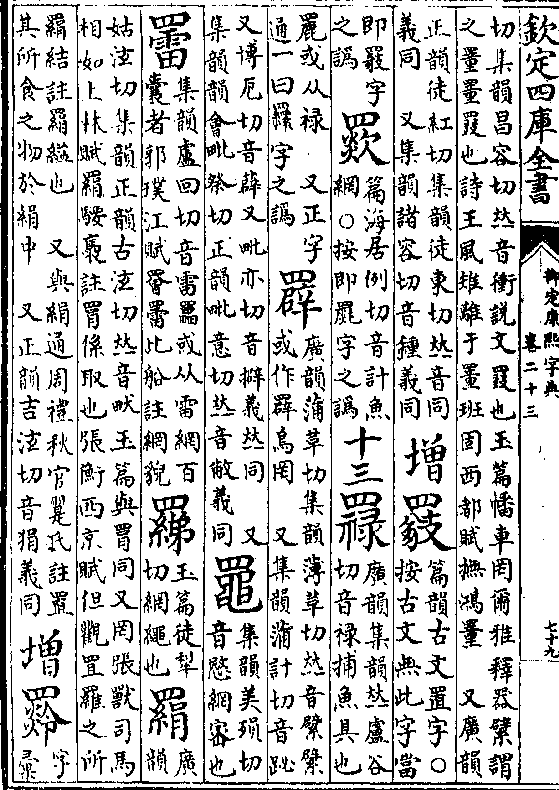 欽定四庫全書
御定康熙字典
卷二十三
七十九
切集韻昌容切𠀤音衝説文罬也玉篇幡車罔爾雅釋器繴謂
之罿罿罬也詩王風雉離于罿班固西都賦撫鴻罿　又廣韻
正韻徒紅切集韻徒東切𠀤音同
義同　又集韻諸容切音鍾義同
增
篇韻古文置字○
按古文無此字當
即罬字
之譌
篇海居例切音計魚
網○按即罽字之譌
十三
廣韻集韻𠀤盧谷
切音禄捕魚具也
或从禄　又正字
通一曰字之譌
廣韻蒲革切集韻薄革切𠀤音繴繴
或作鳥罔　又集韻蒲計切音
又博厄切音薜又毗亦切音擗義𠀤同　又
集韻韻會毗祭切正韻毗意切𠀤音敝義同
集韻美隕切
音愍網密也
䍣
集韻盧回切音雷或从雷網百
囊者郭璞江賦罾䍣比船註網貌
玉篇徒犁
切網繩也
羂
廣
韻
姑泫切集韻正韻古泫切𠀤音畎玉篇與罥同又罔張獸司馬
相如上林賦羂騕褭註罥係取也張衡西京賦但觀罝羅之所
羂結註羂縊也　又與絹通周禮秋官翨氏註置
其所食之物於絹中　又正韻吉泫切音狷義同
增
字
彙